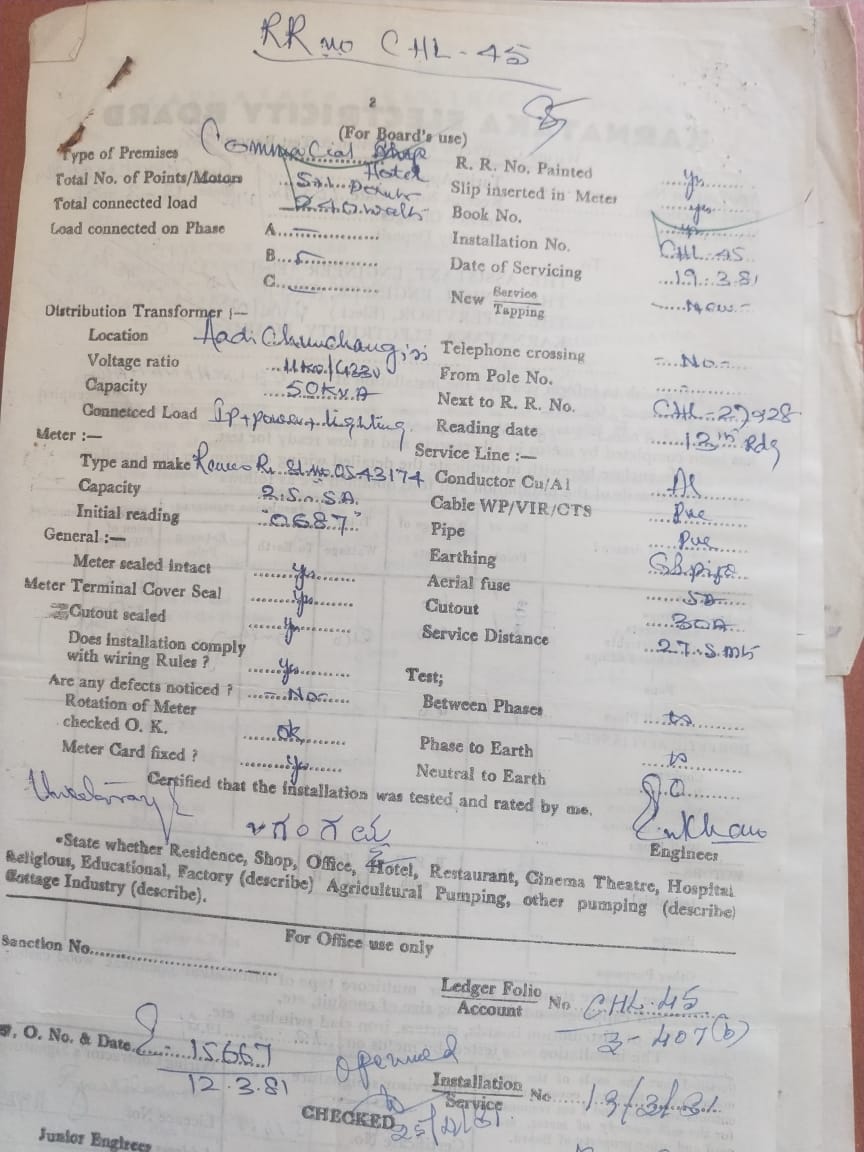 RR no CHL-45
2
(For Board's use)
Type of Premises Commacial Shop Hotel
Total No. of Points/Motors
Total connected load
Load connected on Phase A
B
C
R. R. No. Painted yes
Slip inserted in Meter yes
Book No.
Installation No. CHL-45
Date of Servicing 19.3.81
New Service/Tapping New
Distribution Transformer :—
Location Aadi Chunchangiri
Voltage ratio
Capacity 50KVA
Connetced Load Ip+power+lighting
Telephone crossing No
From Pole No.
Next to R. R. No. CHL-27&28
Reading date 13th Rdg
Meter :—
Type and make 0543174
Capacity
Initial reading "0687"
Service Line :—
Conductor Cu/Al Al
Cable WP/VIR/CTS Pvc
Pipe Pvc
Earthing
Aerial fuse
Cutout 30A
Service Distance 27.5 mts
General :—
Meter sealed intact Yes
Meter Terminal Cover Seal Yes
Cutout sealed Yes
Does installation comply with wiring Rules ? Yes
Are any defects noticed ? No
Rotation of Meter checked O. K. ok
Meter Card fixed ? Yes
Test;
Between Phases
Phase to Earth
Neutral to Earth
Certified that the installation was tested and rated by me.
Engineer
*State whether Residence, Shop, Office, Hotel, Restaurant, Cinema Theatre, Hospital
Religious, Educational, Factory (describe) Agricultural Pumping, other pumping (describe)
Cottage Industry (describe).
For Office use only
Sanction No.
Ledger Folio/Account No CHL-45
3-407(b)
O. No. & Date 15667
12.3.81
opened
Installation/Service No 19/3/81
CHECKED
Junior Engineer